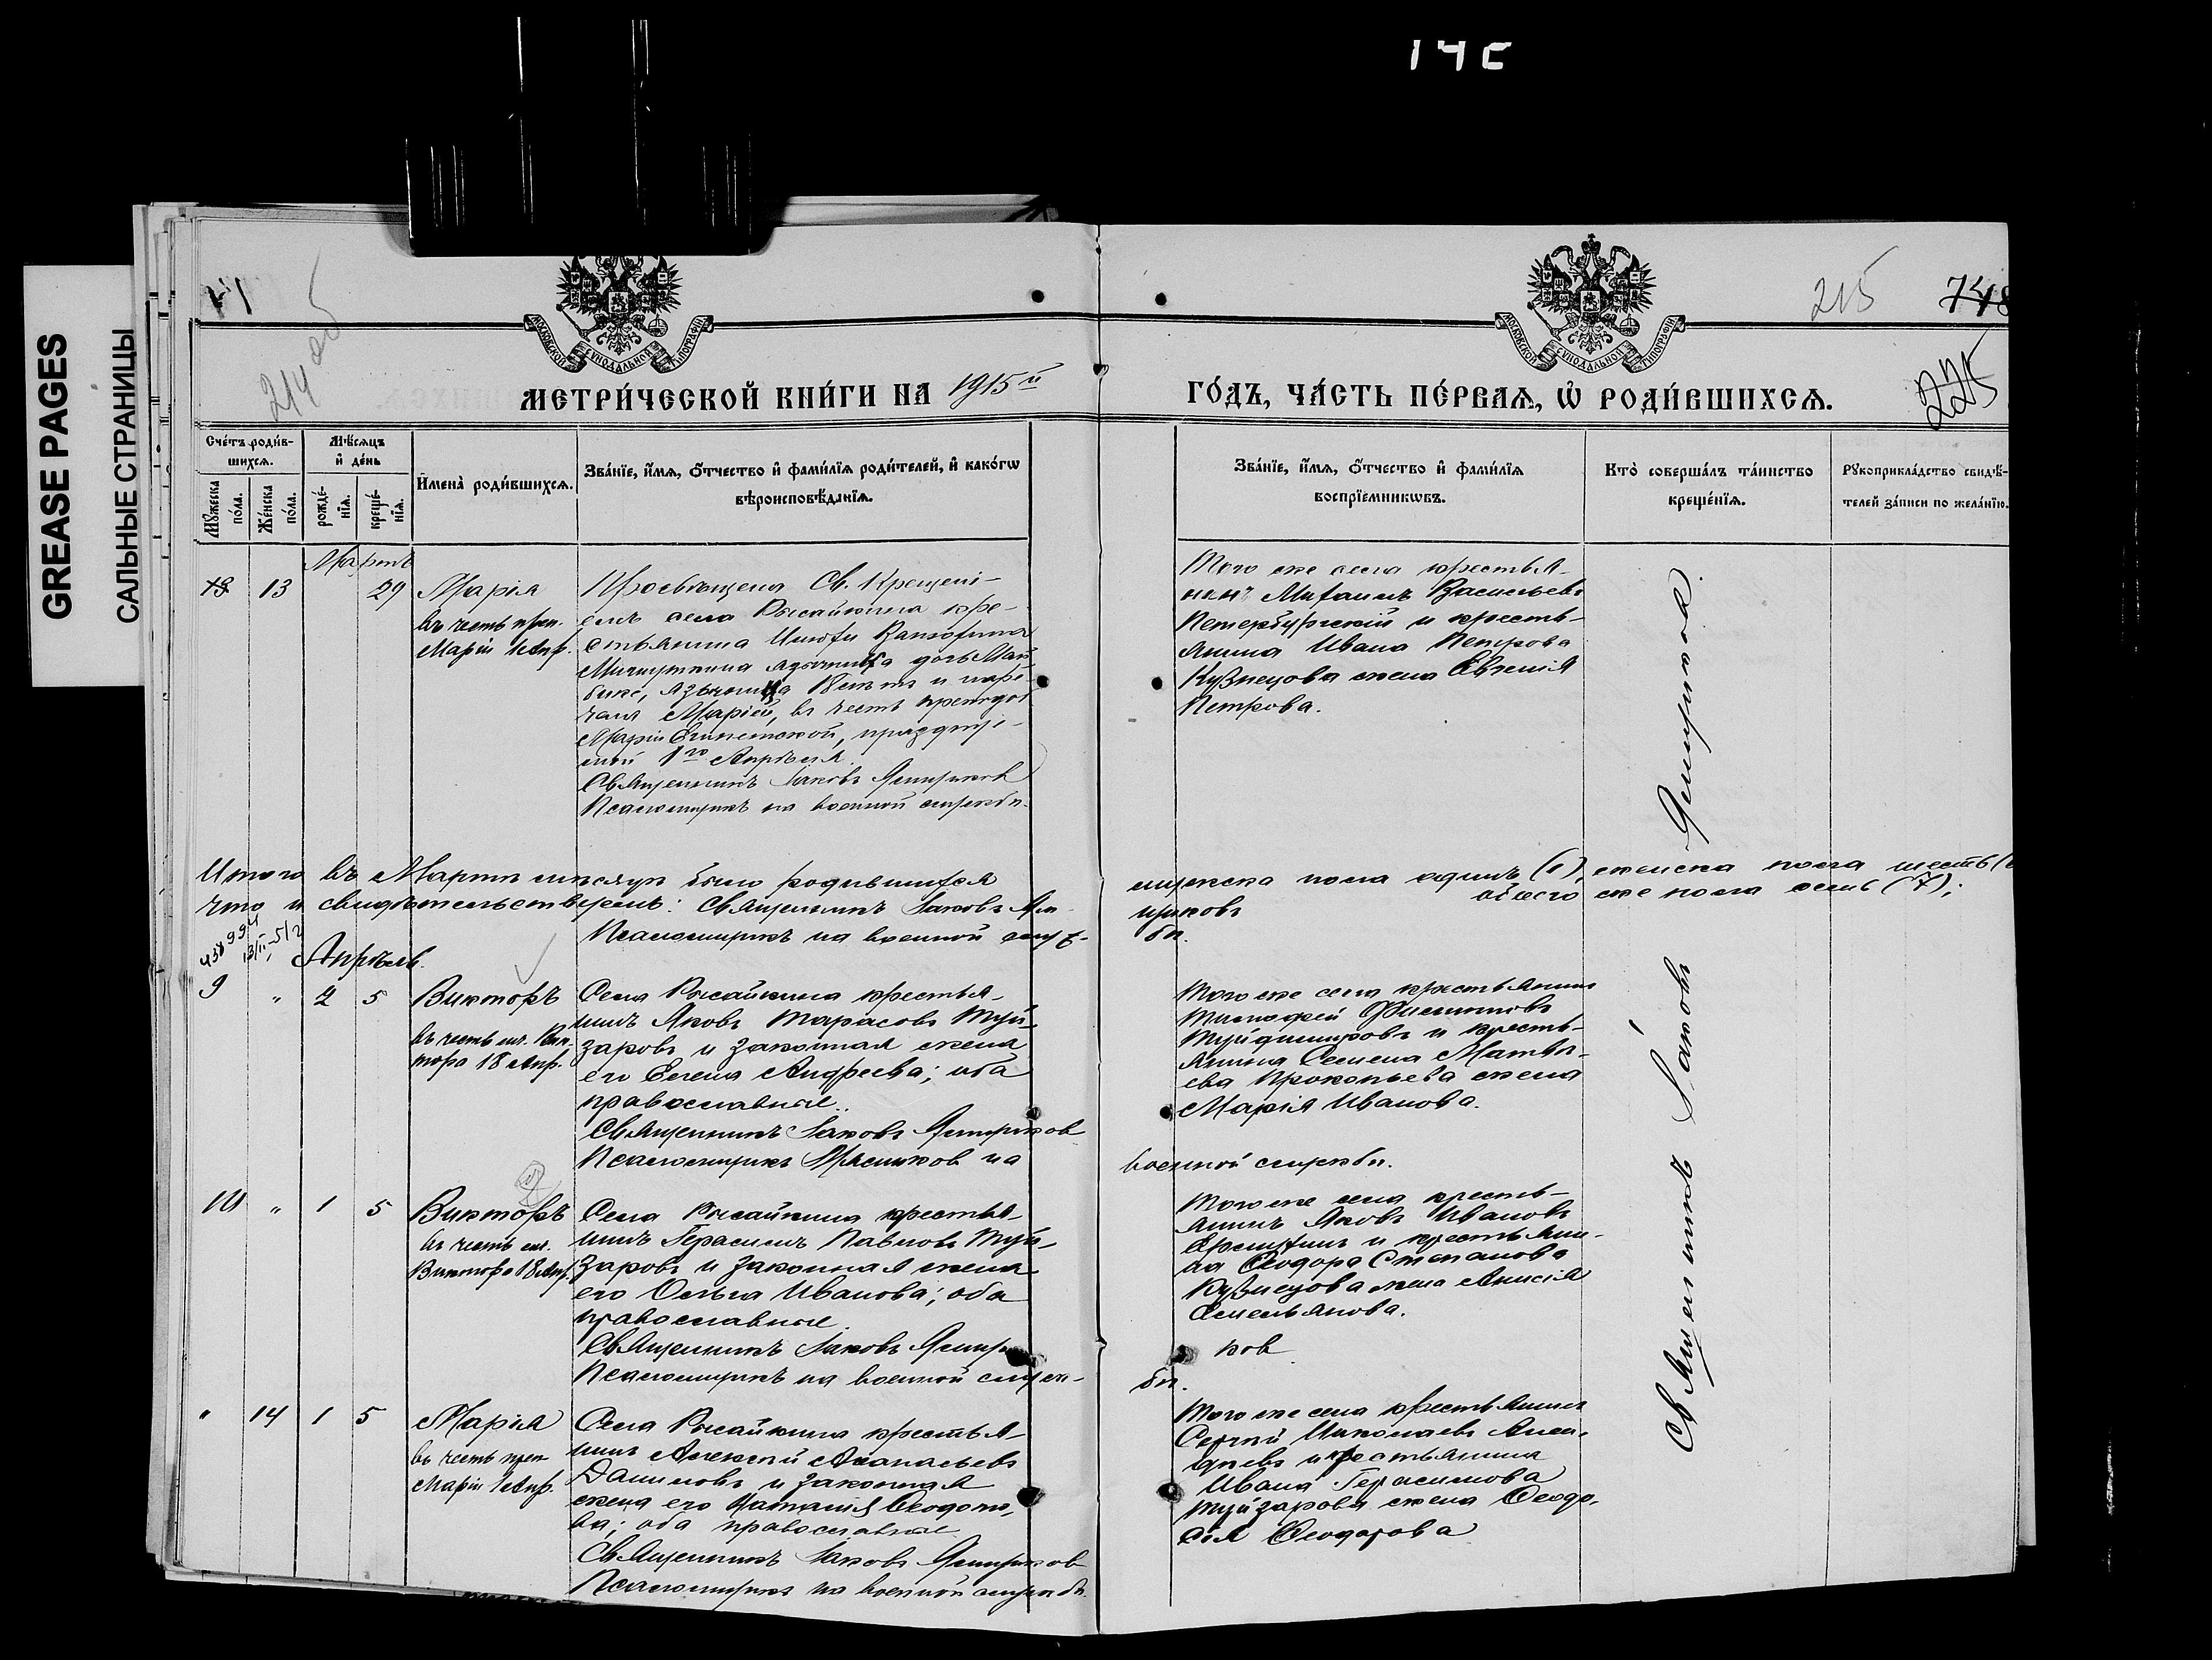 14C
GREASE PAGES
САЛЬНЫЕ СТРАНИЦЫ
214 об
215
748
225
МОСКОВСКОЙ СУНОДАЛЬНОЙ ТИПОГРАФІИ
МОСКОВСКОЙ СУНОДАЛЬНОЙ ТИПОГРАФІИ
МЕТРИ́ЧЕСКОЙ КНИ́ГИ НА 1915й
ГО́ДЪ, ЧА́СТЬ ПЕ́РВАѦ, Ѡ҆ РОДИ́ВШИХСѦ.
Сче́тъ роди́в-
шихсѧ.
Мꙋ́жеска по́ла.
Же́нска по́ла.
Мѣ́сѧцъ
и҆ де́нь
рожде́-
нїѧ.
креще́-
нїѧ.
И҆мена̀ роди́вшихсѧ.
Зва́нїе, и҆́мѧ, ѻ҆́тчество и҆ фами́лїѧ роди́телей, и҆ како́гѡ
вѣроисповѣ́данїѧ.
Зва́нїе, и҆́мѧ, ѻ҆́тчество и҆ фами́лїѧ
воспрїе́мникѡвъ.
Кто̀ соверша́лъ та́инство
креще́нїѧ.
Рꙋкоприкла́дство свидѣ́-
телей за́писи по жела́нїю.
Мартъ
13 29 Марія
въ честь преп.
Маріи 1 Апр.
Просвѣщена Св. Крещені-
емъ села Рысайкина кре-
стьянина
язычника дочь
язычница 18 лѣтъ и наре-
чена Маріей, въ честь преподоб
Маріи Египетской, празднуе-
мой 1го Апрѣля.
Священникъ Іаковъ
Псаломщикъ на военной службѣ.
Того же села крестья-
нинъ Михаилъ Васильевъ
Петербургскій и кресть-
янина Ивана Петрова
Кузнецова жена Евгенія
Петрова.
Итого въ Мартѣ мѣсяцѣ было родившихся
мужска пола одинъ (1), женска пола шесть
обоего же пола семь (7);
что и свидѣтельствуемъ: Священникъ Іаковъ
Псаломщикъ на военной служ-
бѣ.
Апрѣль.
9 " 2 5 Викторъ
въ честь мч. Вик-
тора 18 Апр.
Села Рысайкина крестья-
нинъ Яковъ Тарасовъ Туй-
заровъ и законная жена
его Елена Андреева; оба
православные.
Священникъ Іаковъ
Псаломщикъ на
военной службѣ.
Того же села крестьянинъ
Тимофей Филипповъ
и кресть-
янина Семена Матвѣ-
ева Прокопьева жена
Марія Иванова.
10 " 1 5 Викторъ
въ честь мч.
Виктора 18 Апр.
Села Рысайкина крестья-
нинъ Герасимъ Павловъ Туй-
заровъ и законная жена
его Ольга Иванова; оба
православные.
Священникъ Іаковъ
ковъ
Псаломщикъ на военной служ-
бѣ.
Того же села кресть-
янинъ Яковъ Ивановъ
и крестьяни-
на Ѳеодора Степанова
Кузнецова жена Анисія
Емельянова.
" 14 1 5 Марія
въ честь преп
Маріи 1 Апр.
Села Рысайкина крестья-
нинъ Алексѣй Аѳанасьевъ
Даниловъ и законная
жена его Наталія Ѳеодото-
ва; оба православные
Священникъ Іаковъ
Псаломщикъ на военной службѣ.
Того же села крестьянинъ
Сергій Николаевъ
и крестьянина
Ивана Герасимова
Туйзарова жена Ѳеодо-
сія Ѳеодорова
Священникъ Іаковъ